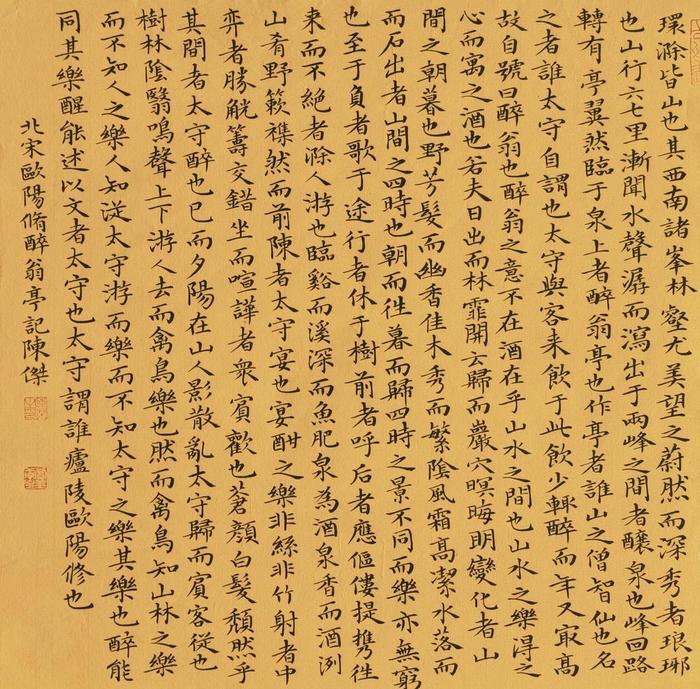 環滁皆山也其西南諸峯林壑尤美望之蔚然而深秀者琅琊
也山行六七里漸聞水聲潺而瀉出于兩峰之間者釀泉也峰回路
轉有亭翼然臨于泉上者醉翁亭也作亭者誰山之僧智仙也名
之者誰太守自謂也太守與客来飲于此飲少輒醉而年又冣高
故自號曰醉翁也醉翁之意不在酒在乎山水之間也山水之樂得之
心而寓之酒也若夫日出而林霏開云歸而巖穴暝晦明變化者山
間之朝暮也野芳髮而幽香佳木秀而繁陰風霜高潔水落而
而石出者山間之四時也朝而往暮而歸四時之景不同而樂亦無窮
也至于負者歌于途行者休于樹前者呼后者應傴僂提携往
来而不絕者滁人游也臨谿而溪深而魚肥泉為酒泉香而酒洌
山肴野蔌襍然而前陳者太守宴也宴酣之樂非絲非竹射者中
弈者勝觥籌交錯坐而喧譁者衆賓歡也蒼顏白髮頹然乎
其間者太守醉也已而夕陽在山人影散亂太守歸而賓客從也
樹林陰翳鳴聲上下游人去而禽鳥樂也然而禽鳥知山林之樂
而不知人之樂人知從太守游而樂而不知太守之樂其樂也醉能
同其樂醒能述以文者太守也太守謂誰廬陵歐陽修也
北宋歐陽脩醉翁亭記陳傑